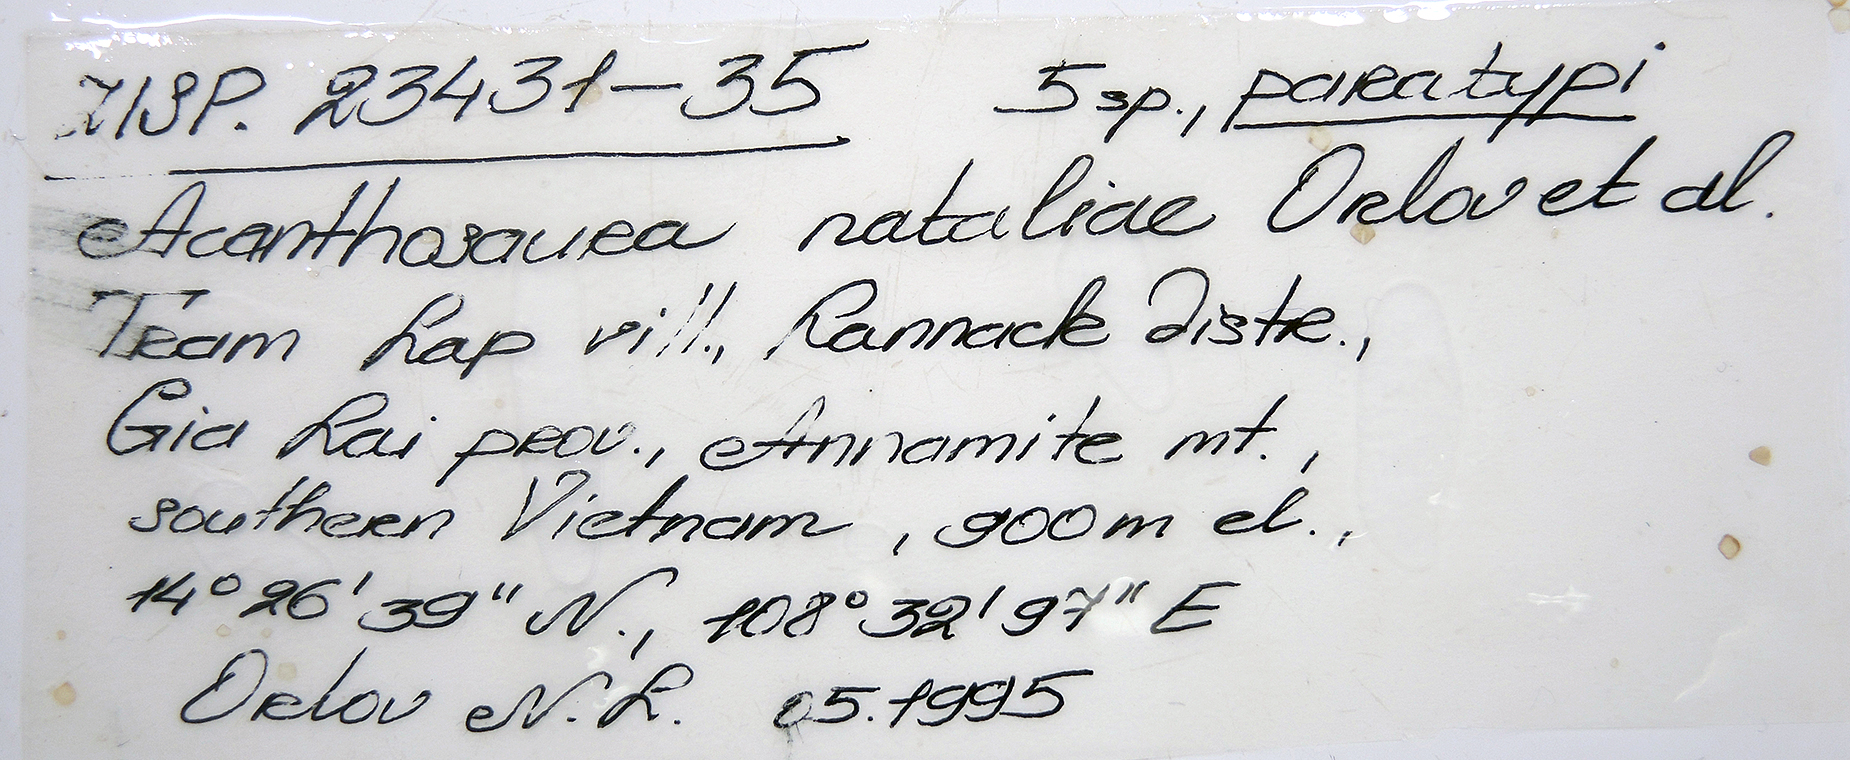 ZISP. 23431-35 5 sp., paratypi
Acanthosaura nataliae Orlov et al.
Tram Lap vill., Kannack Distr.,
Gia Lai prov., Annamite mt.,
southern Vietnam, 900 m el.,
14° 26' 39" N., 108° 32' 97" E
Orlov N. L. 05.1995